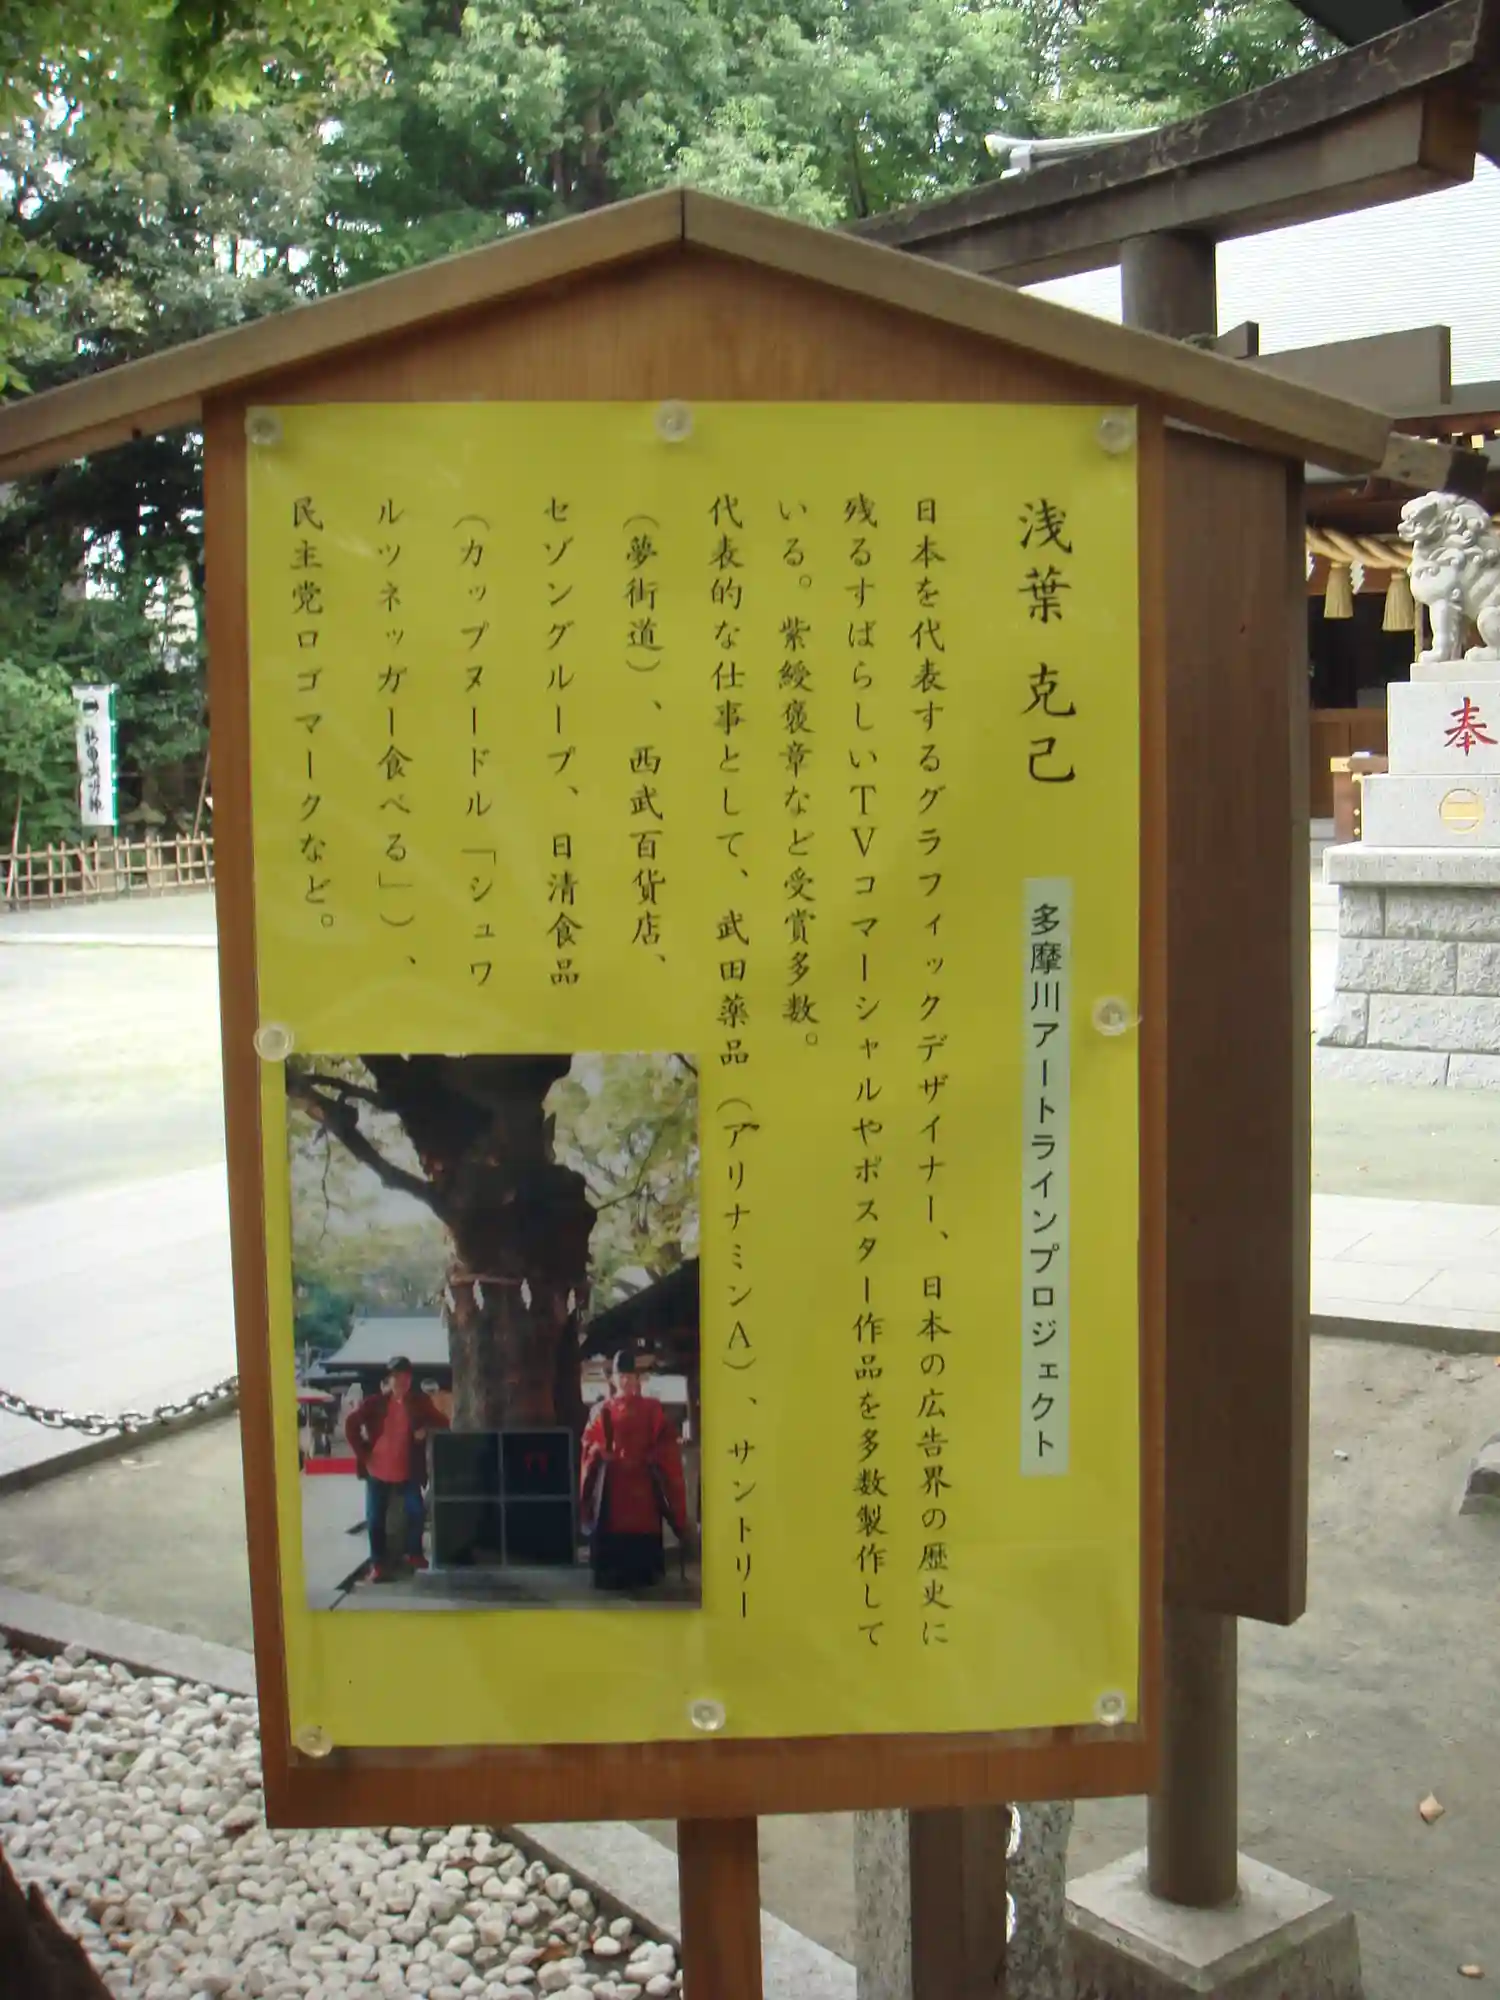 浅葉 克己 多摩川アートラインプロジェクト
日本を代表するグラフィックデザイナー、日本の広告界の歴史に
残るすばらしいTVコマーシャルやポスター作品を多数製作して
いる。紫綬褒章など受賞多数。
代表的な仕事として、武田薬品（アリナミンA）、サントリー
（夢街道）、西武百貨店、
セゾングループ、日清食品
（カップヌードル「シュワ
ルツネッガー食べる」）、
民主党ロゴマークなど。
奉